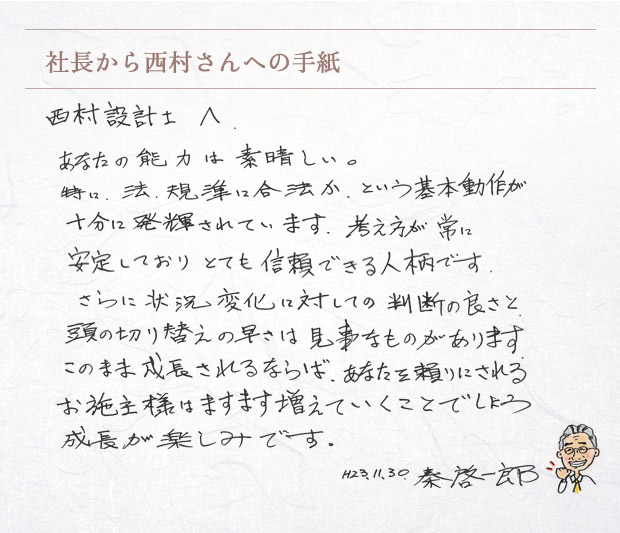 社長から西村さんへの手紙
西村設計士 へ.
あなたの能力は素晴しい。
特に、法、規準に合法か、という基本動作が
十分に発輝されています。考え方が常に
安定しており とても信頼できる人柄です.
さらに状況、変化に対しての判断の良さと、
頭の切り替えの早さは見事なものがあります。
このまま成長されるならば、あなたを頼りにされる
お施主様はますます増えていくことでしょう
成長が楽しみです。
H23.11.30. 秦啓一郎